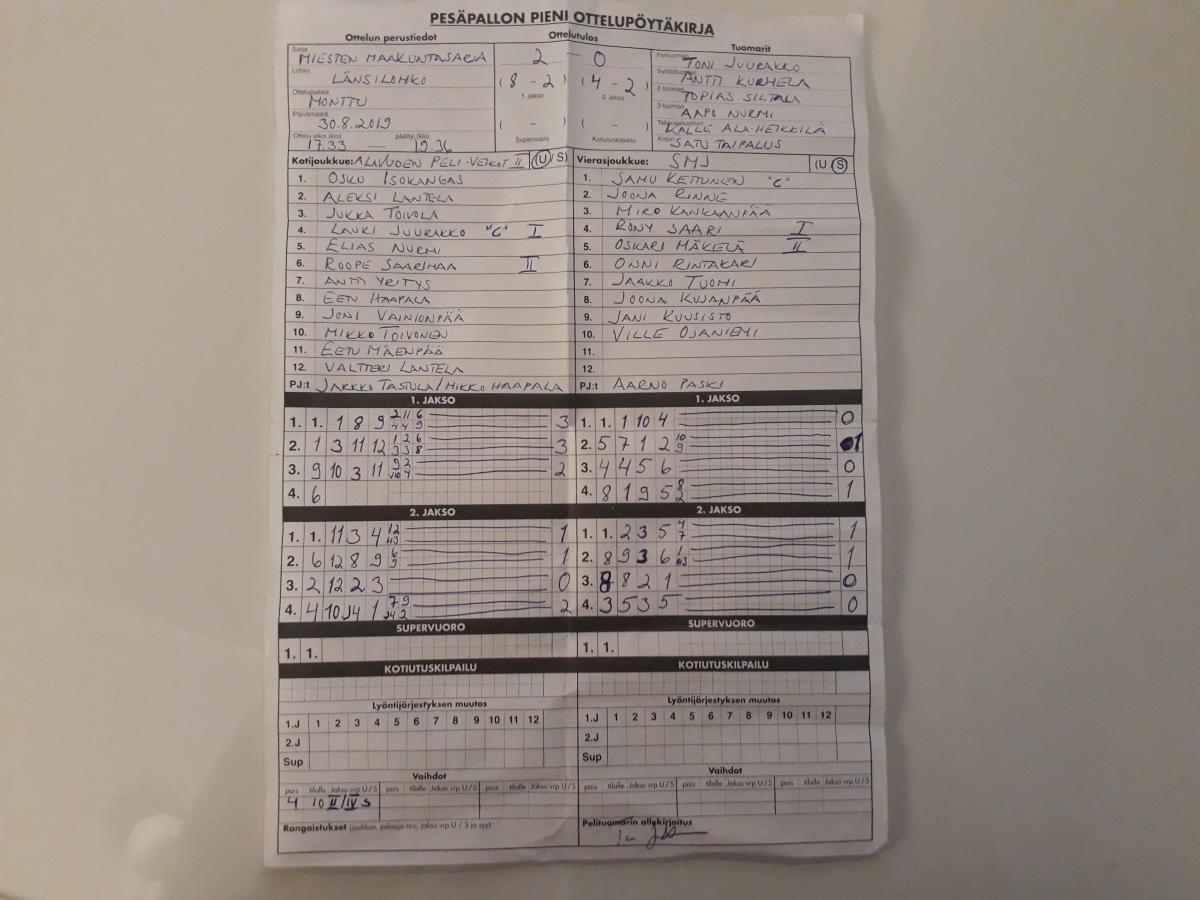 PESÄPALLON PIENI OTTELUPÖYTÄKIRJA
Ottelun perustiedot Ottelutulos Tuomarit
Sarja MIESTEN MAAKUNTASARJA 2 - 0 Pelituomari TONI JUURAKKO
Lohko LÄNSILOHKO (8 - 2) (4 - 2) Syöttötuomari ANTTI KURHELA
1. jakso 2. jakso
Ottelupaikka MONTTU 2-tuomari TOPIAS SILTALA
Päivämäärä 30.8.2019 ( - ) ( - ) 3-tuomari AAPO NURMI
Takarajatuomari KALLE ALA-HEIKKILÄ
Ottelu alkoi (klo) 17.33 — päättyi (klo) 19.36 Supervuoro Kotiutuskilpailu Kirjuri SATU TAIPALUS
Kotijoukkue: ALAVUDEN PELI-VEIKOT II (U/S) Vierasjoukkue: SMJ (U/S)
1. OSKU ISOKANGAS 1. SAMU KETTUNEN "C"
2. ALEKSI LANTELA 2. JOONA RINNE
3. JUKKA TOIVOLA 3. MIRO KANKAANPÄÄ
4. LAURI JUURAKKO "C" I 4. RONY SAARI I
5. ELIAS NURMI 5. OSKARI MÄKELÄ II
6. ROOPE SAARIMAA II 6. ONNI RINTAKARI
7. ANTTI YRITYS 7. JAAKKO TUOMI
8. EETU HAAPALA 8. JOONA KUJANPÄÄ
9. JONI VAINIONPÄÄ 9. JANI KUUSISTO
10. MIKKO TOIVONEN 10. VILLE OJANIEMI
11. EETU MÄENPÄÄ 11.
12. VALTTERI LANTELA 12.
PJ:t JARKKO TASTULA/MIKKO HAAPALA PJ:t AARNO PASKI
1. JAKSO 1. JAKSO
1. 1. 1 8 9 2/4 11/4 6/9 3 1. 1. 1 10 4 0
2. 1 3 11 12 1/3 2/3 6/8 3 2. 5 7 1 2 10/9 1
3. 9 10 3 11 9/10 2/4 2 3. 4 4 5 6 0
4. 6 4. 8 1 9 5 8/2 1
2. JAKSO 2. JAKSO
1. 1. 11 3 4 12/13 1 1. 1. 2 3 5 4/7 1
2. 6 12 8 9 6/9 1 2. 8 9 3 6 1/13 1
3. 2 12 2 3 0 3. 8 8 2 1 0
4. 4 10 J4 1 7/J4 9/2 2 4. 3 5 3 5 0
SUPERVUORO SUPERVUORO
1. 1. 1. 1.
KOTIUTUSKILPAILU KOTIUTUSKILPAILU
Lyöntijärjestyksen muutos Lyöntijärjestyksen muutos
1.J 1 2 3 4 5 6 7 8 9 10 11 12 1.J 1 2 3 4 5 6 7 8 9 10 11 12
2.J 2.J
Sup Sup
Vaihdot Vaihdot
pois tilalle Jakso vrp U/S pois tilalle Jakso vrp U/S pois tilalle Jakso vrp U/S pois tilalle Jakso vrp U/S pois tilalle Jakso vrp U/S pois tilalle Jakso vrp U/S
4 10 II/IV S
Rangaistukset (joukkue, pelaaja nro, jakso vrp U / S ja syy) Pelituomarin allekirjoitus